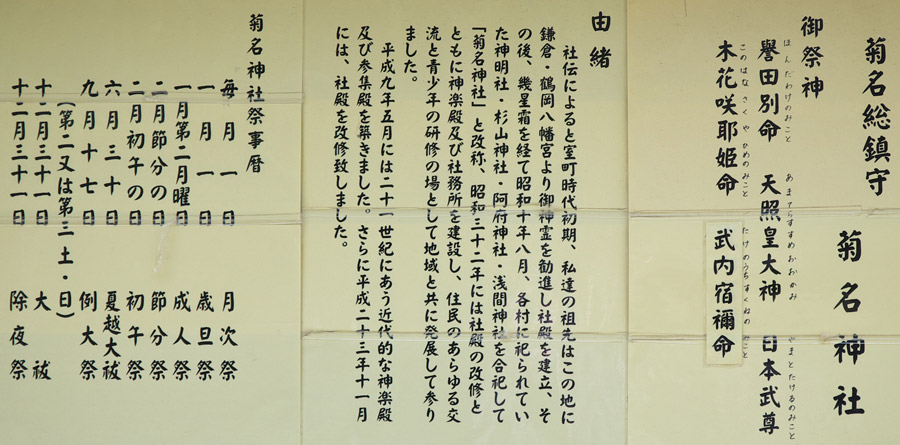 菊名総鎮守
菊名神社
御祭神
ほんだわけのみこと あまてらすすめおおかみ やまとたけるのみこと
譽田別命 天照皇大神 日本武尊
このはなさくやひめのみこと たけのうちすくねのみこと
木花咲耶姫命 武内宿禰命
由緒
社伝によると室町時代初期、私達の祖先はこの地に
鎌倉・鶴岡八幡宮より御神霊を勧進し社殿を建立、そ
の後、幾星霜を経て昭和十年八月、各村に祀られてい
た神明社・杉山神社・阿府神社・浅間神社を合祀して
「菊名神社」と改称、昭和三十二年には社殿の改修と
ともに神楽殿及び社務所を建設し、住民のあらゆる交
流と青少年の研修の場として地域と共に発展して参り
ました。
平成九年五月には二十一世紀にあう近代的な神楽殿
及び参集殿を築きました。さらに平成二十三年十一月
には、社殿を改修致しました。
菊名神社祭事暦
毎月一日 月次祭
一月一日 歳旦祭
一月第二月曜日 成人祭
二月節分の日 節分祭
二月初午の日 初午祭
六月三十日 夏越大祓
九月十七日 例大祭
(第二又は第三土・日)
十二月三十一日 大祓
十二月三十一日 除夜祭